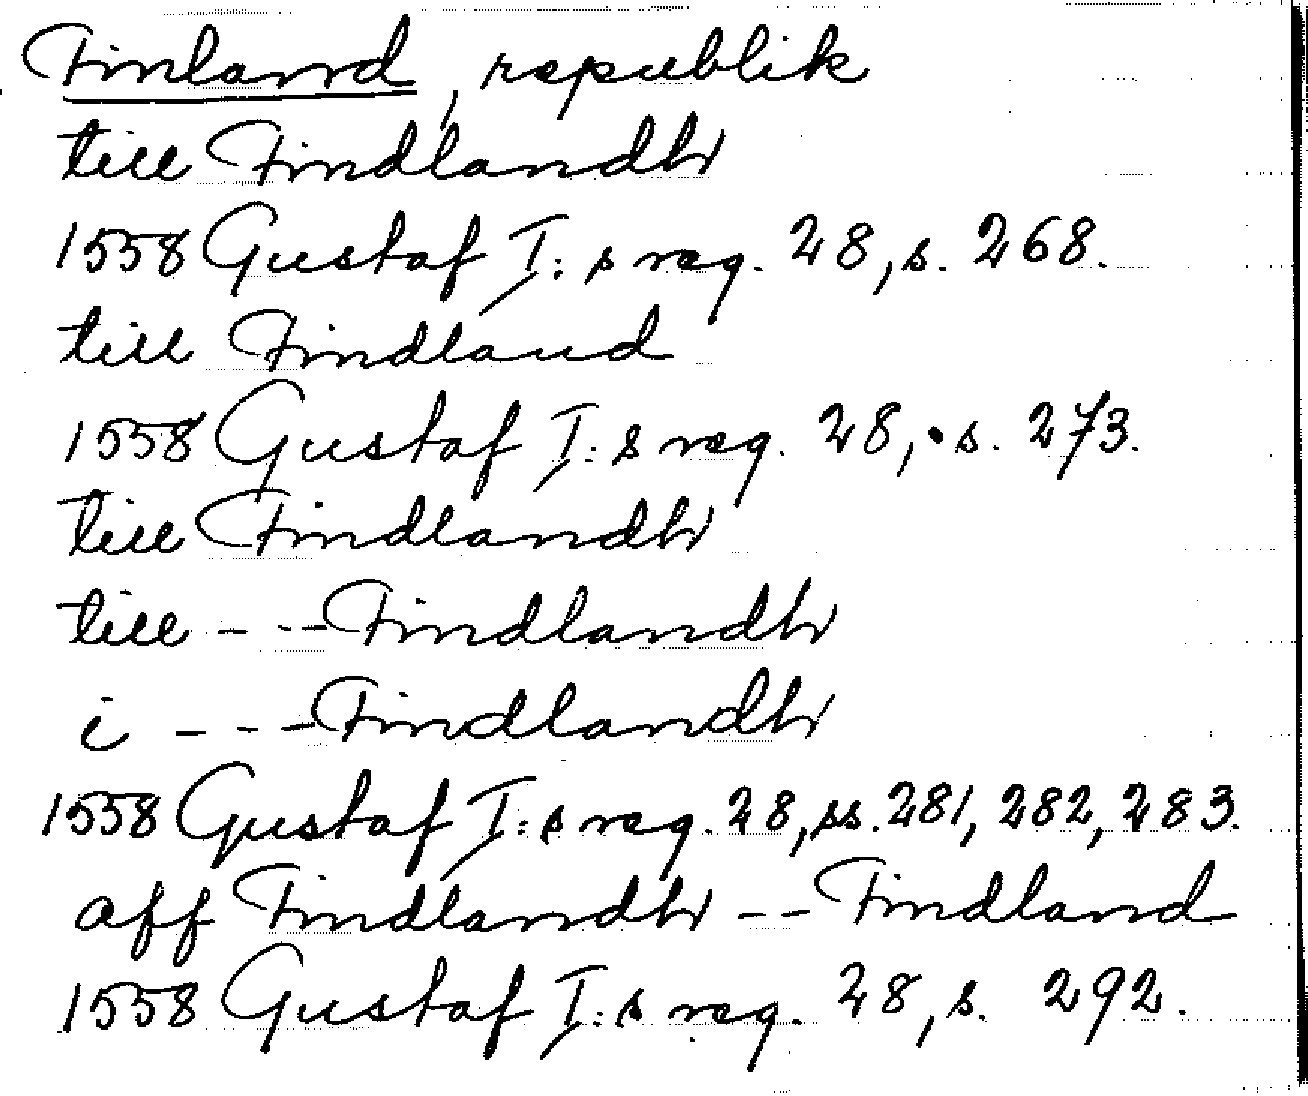 Finland, republik
till Findlandh
1558 Gustaf I:s reg. 28, s. 268.
till Findland
1558 Gustaf I:s reg. 28, s. 273.
till Findlandh
till - - - Findlandh
i - - - Findlandh
1558 Gustaf I:s reg. 28, ss. 281, 282, 283.
aff Findlandh - - Findland
1558 Gustaf I:s reg. 28, s. 292.